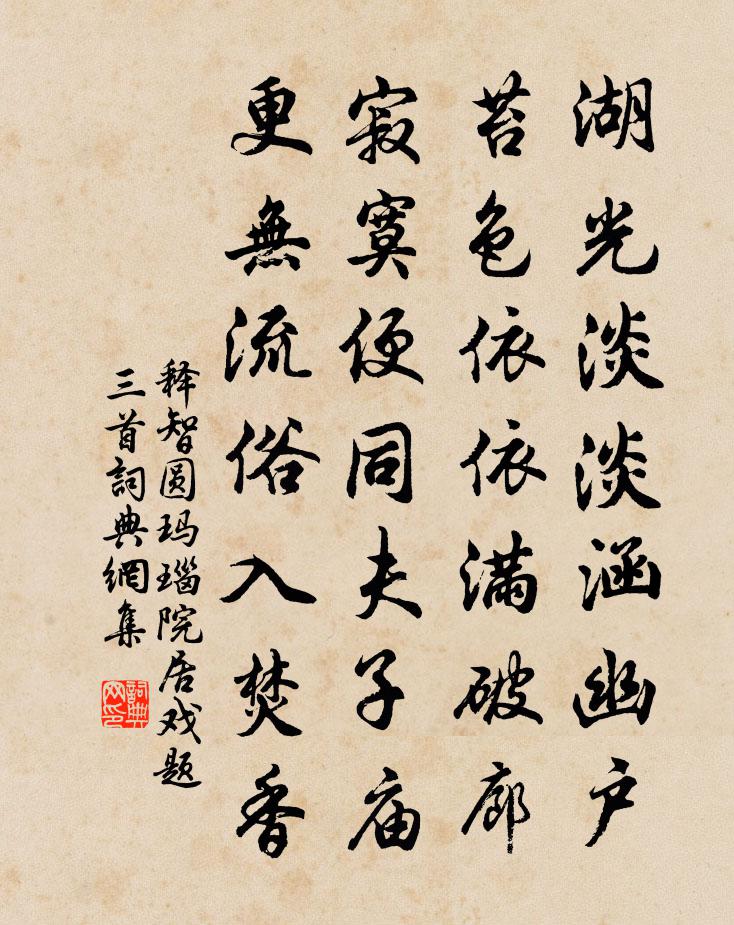 湖光淡淡涵幽户
苔色依依满破廊
寂寞便同夫子庙
更無流俗入焚香
释智圆玛瑙院居戏题
三首詞典網集
詞典
网印